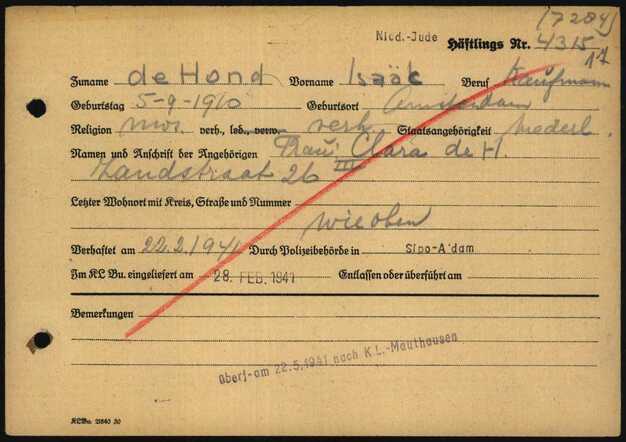 (7284)
Nied.-Jude Häftlings Nr. 4315
17
Zuname de Hond Vorname Isaäc Beruf Kaufmann
Geburtstag 5-9-1910 Geburtsort Amsterdam
Religion mos. verh., led., verw. verh. Staatsangehörigkeit Niederl.
Namen und Anschrift der Angehörigen Frau: Clara de H.
Zandstraat 26 III
Letzter Wohnort mit Kreis, Straße und Nummer
wie oben
Verhaftet am 22.2.1941 Durch Polizeibehörde in Sipo-A'dam
Im KL Bu. eingeliefert am 28. FEB. 1941 Entlassen oder überführt am
Bemerkungen
Überf. am 22.5.1941 nach K.L.-Mauthausen
KLBu. 21840 30